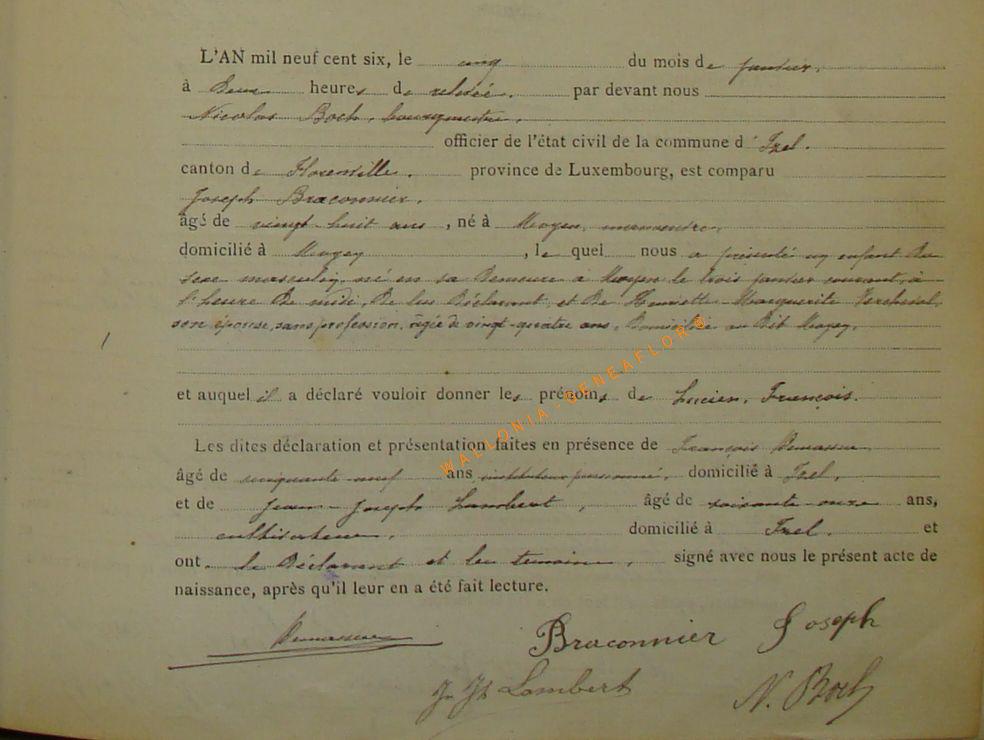 L'AN mil neuf cent six, le cinq du mois de janvier,
à deux heures de relevée. par devant nous
Nicolas Boch, bourgmestre,
officier de l'état civil de la commune d'Izel.
canton de Florenville. province de Luxembourg, est comparu
Joseph Braconnier,
âgé de vingt huit ans, né à Moyen, manoeuvre,
domicilié à Moyen, le quel nous a présenté un enfant du
sexe masculin, né en sa demeure à Moyen le trois janvier courant, à
heure de midi, de lui déclarant et de Henriette Marguerite
son épouse, sans profession, âgée de vingt-quatre ans, domiciliée au dit Moyen,
WALLONIA - GENEAFLOR®
et auquel il a déclaré vouloir donner les prénoms de Lucien, François.
Les dites déclaration et présentation faites en présence de François
âgé de cinquante neuf ans instituteur pensionné, domicilié à Izel,
et de Jean-Joseph Lambert, âgé de soixante onze ans,
cultivateur, domicilié à Izel. et
ont le déclarant et les témoins, signé avec nous le présent acte de
naissance, après qu'il leur en a été fait lecture.
Braconnier Joseph
Jn Jh Lambert
N. Boch